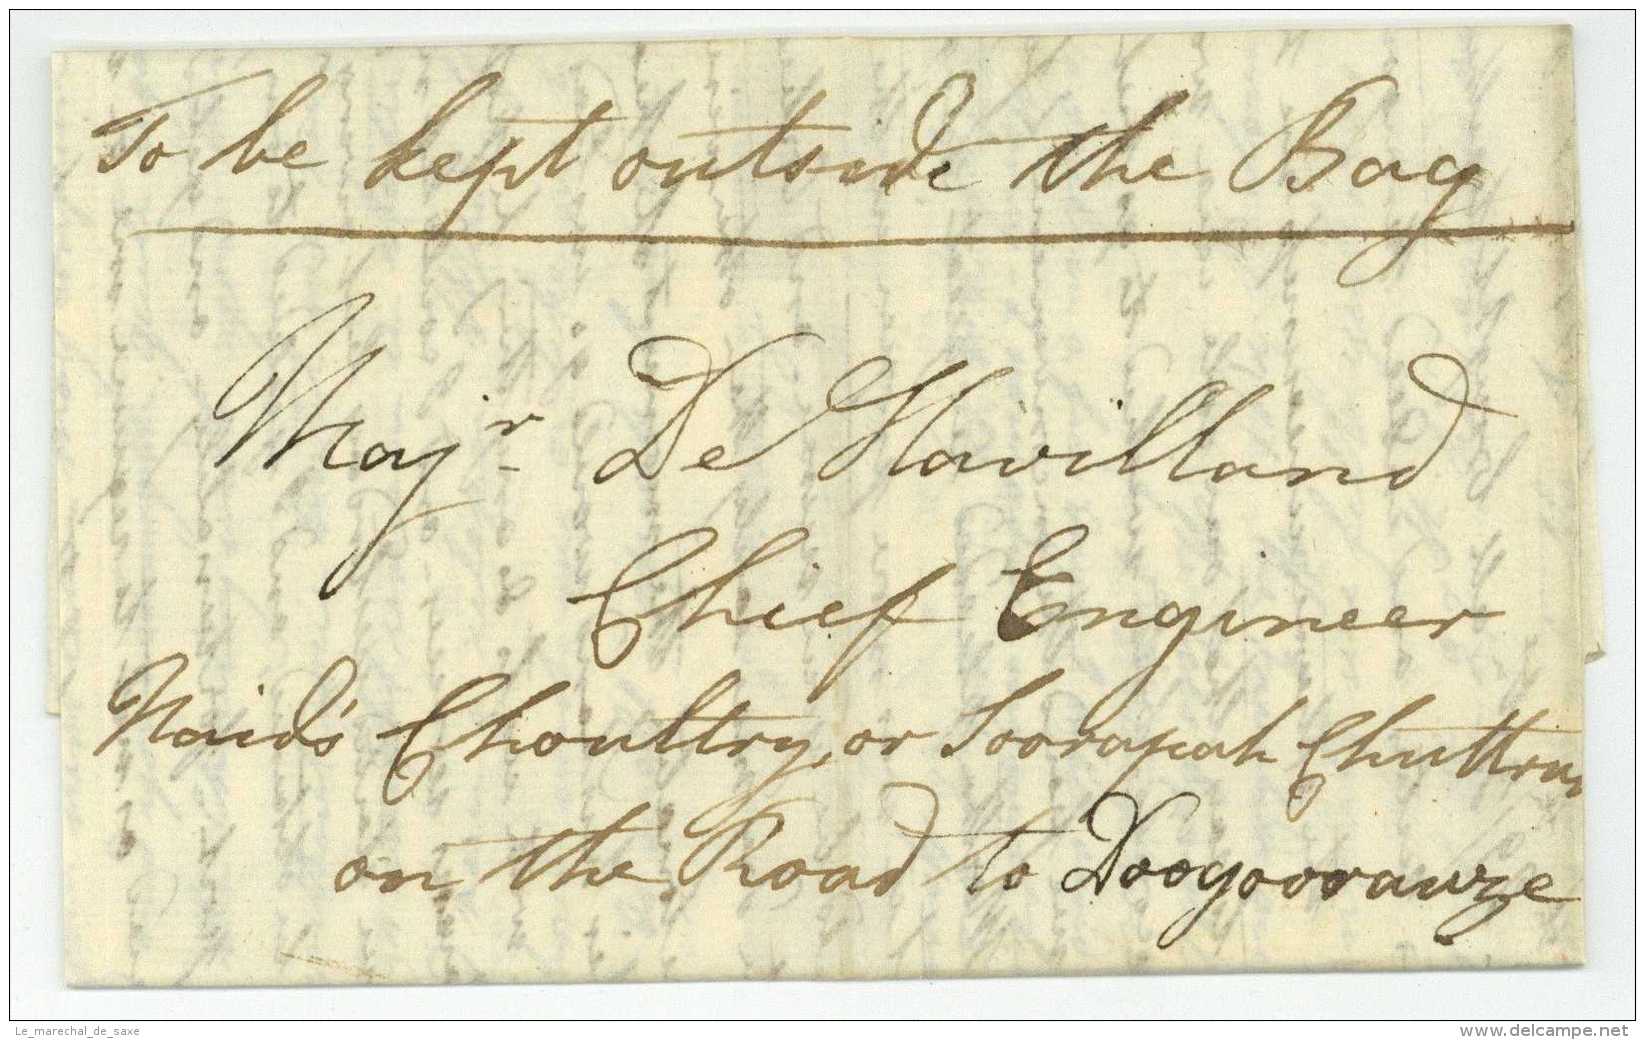 To be kept outside the Bag
Majr De Havilland
Chief Engineer
Naid's Choultry, or Soorapah Chuttrum
on the Road to Doogooorauze
Le_marechal_de_saxe
www.delcampe.net